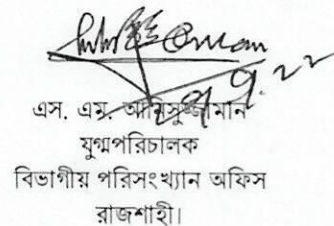 ২৭.৭.২২
এস. এম. আনিসুজ্জামান
যুগ্মপরিচালক
বিভাগীয় পরিসংখ্যান অফিস
রাজশাহী।